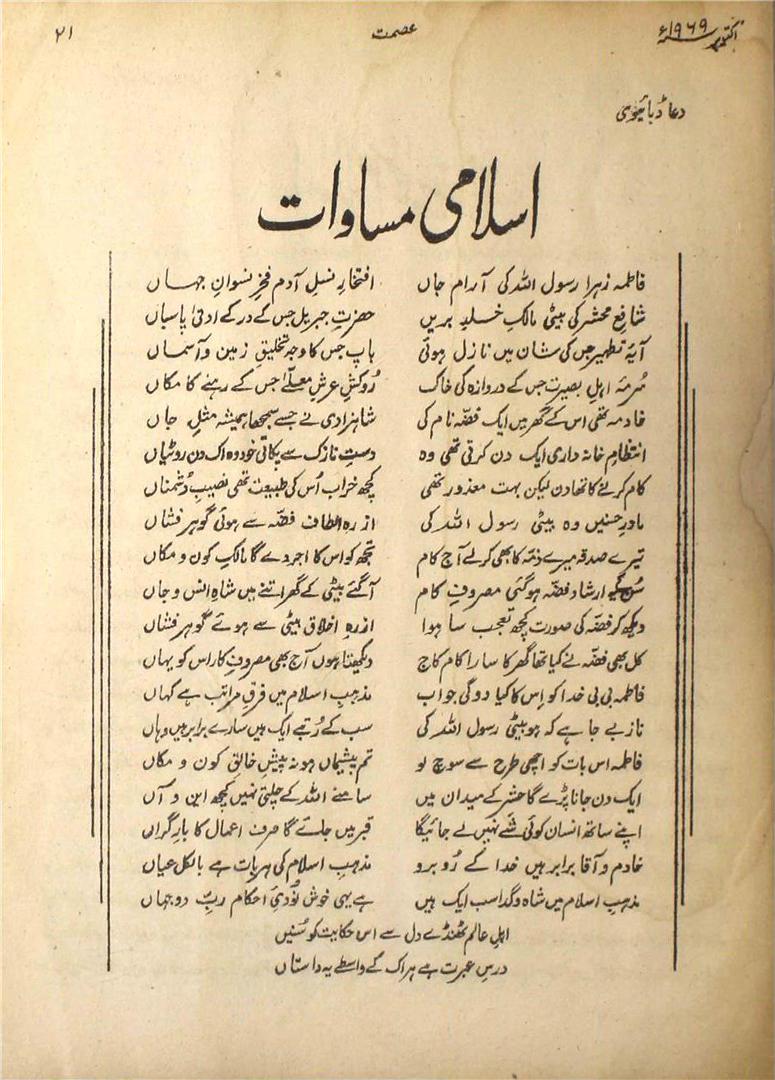 اکتوبر ۱۹۶۹ء عصمت ۲۱
دعا ڈبائیوی
اسلامی مساوات
فاطمہ زہرا رسول اللہ کی آرام جاں افتخارِ نسلِ آدم فخرِ نسوانِ جہاں
شافع محشر کی بیٹی مالکِ خلدِ بریں حضرتِ جبریل جس کے در کے ادنیٰ پاسباں
آیۂ تطہیر جس کی شان میں نازل ہوئی باپ جس کا وجہِ تخلیقِ زمین و آسماں
سُرمۂ اہلِ بصیرت جس کے دروازہ کی خاک رُوکشِ عرشِ معلّےٰ جس کے رہنے کا مکاں
خادمہ تھی اس کے گھر میں ایک فضّہ نام کی شاہزادی نے جسے سمجھا ہمیشہ مثلِ جاں
انتظامِ خانہ داری ایک دن کرتی تھی وہ دستِ نازک سے پکاتی خود وہ اک دن روٹیاں
کام کرنے کا تھا دن لیکن بہت معذور تھی کچھ خراب اُس کی طبیعت تھی نصیبِ دشمناں
مادرِ حسنین وہ بیٹی رسول اللہ کی از رہِ الطاف فضّہ سے ہوئی گوہر فشاں
تیرے صدقہ میرے ذمّہ کا بھی کرلے آج کام تجھ کو اس کا اجر دے گا مالکِ کون و مکاں
سُن کے ارشاد فضّہ ہوگئی مصروفِ کام آگئے بیٹی کے گھر اتنے میں شاہِ انس و جاں
دیکھ کر فضّہ کی صورت کچھ تعجب سا ہوا ازرہِ اخلاق بیٹی سے ہوئے گوہر فشاں
کل بھی فضّہ نے کیا تھا گھر کا سارا کام کاج دیکھتا ہوں آج بھی مصروفِ کار اس کو یہاں
فاطمہ بی بی خدا کو اِس کا کیا دوگی جواب مذہبِ اسلام میں فرقِ مراتب ہے کہاں
ناز بے جا ہے کہ ہو بیٹی رسول اللہ کی سب کے رُتبے ایک ہیں سارے برابر ہیں وہاں
فاطمہ اس بات کو اچھی طرح سے سوچ لو تم پشیماں ہو نہ پیشِ خالقِ کون و مکاں
ایک دن جانا پڑے گا حشر کے میدان میں سامنے اللہ کے چلتی نہیں کچھ این و آں
اپنے ساتھ انسان کوئی شے نہیں لے جائیگا قبر میں جائے گا صرف اعمال کا بارِ گراں
خادم و آقا برابر ہیں خدا کے رُو برو مذہبِ اسلام کی ہر بات ہے بالکل عیاں
مذہبِ اسلام میں شاہ و گدا سب ایک ہیں ہے یہی خوش نُودیٔ احکامِ ربِّ دو جہاں
اہلِ عالم ٹھنڈے دل سے اس حکایت کو سُنیں
درسِ عبرت ہے ہر اک کے واسطے یہ داستاں